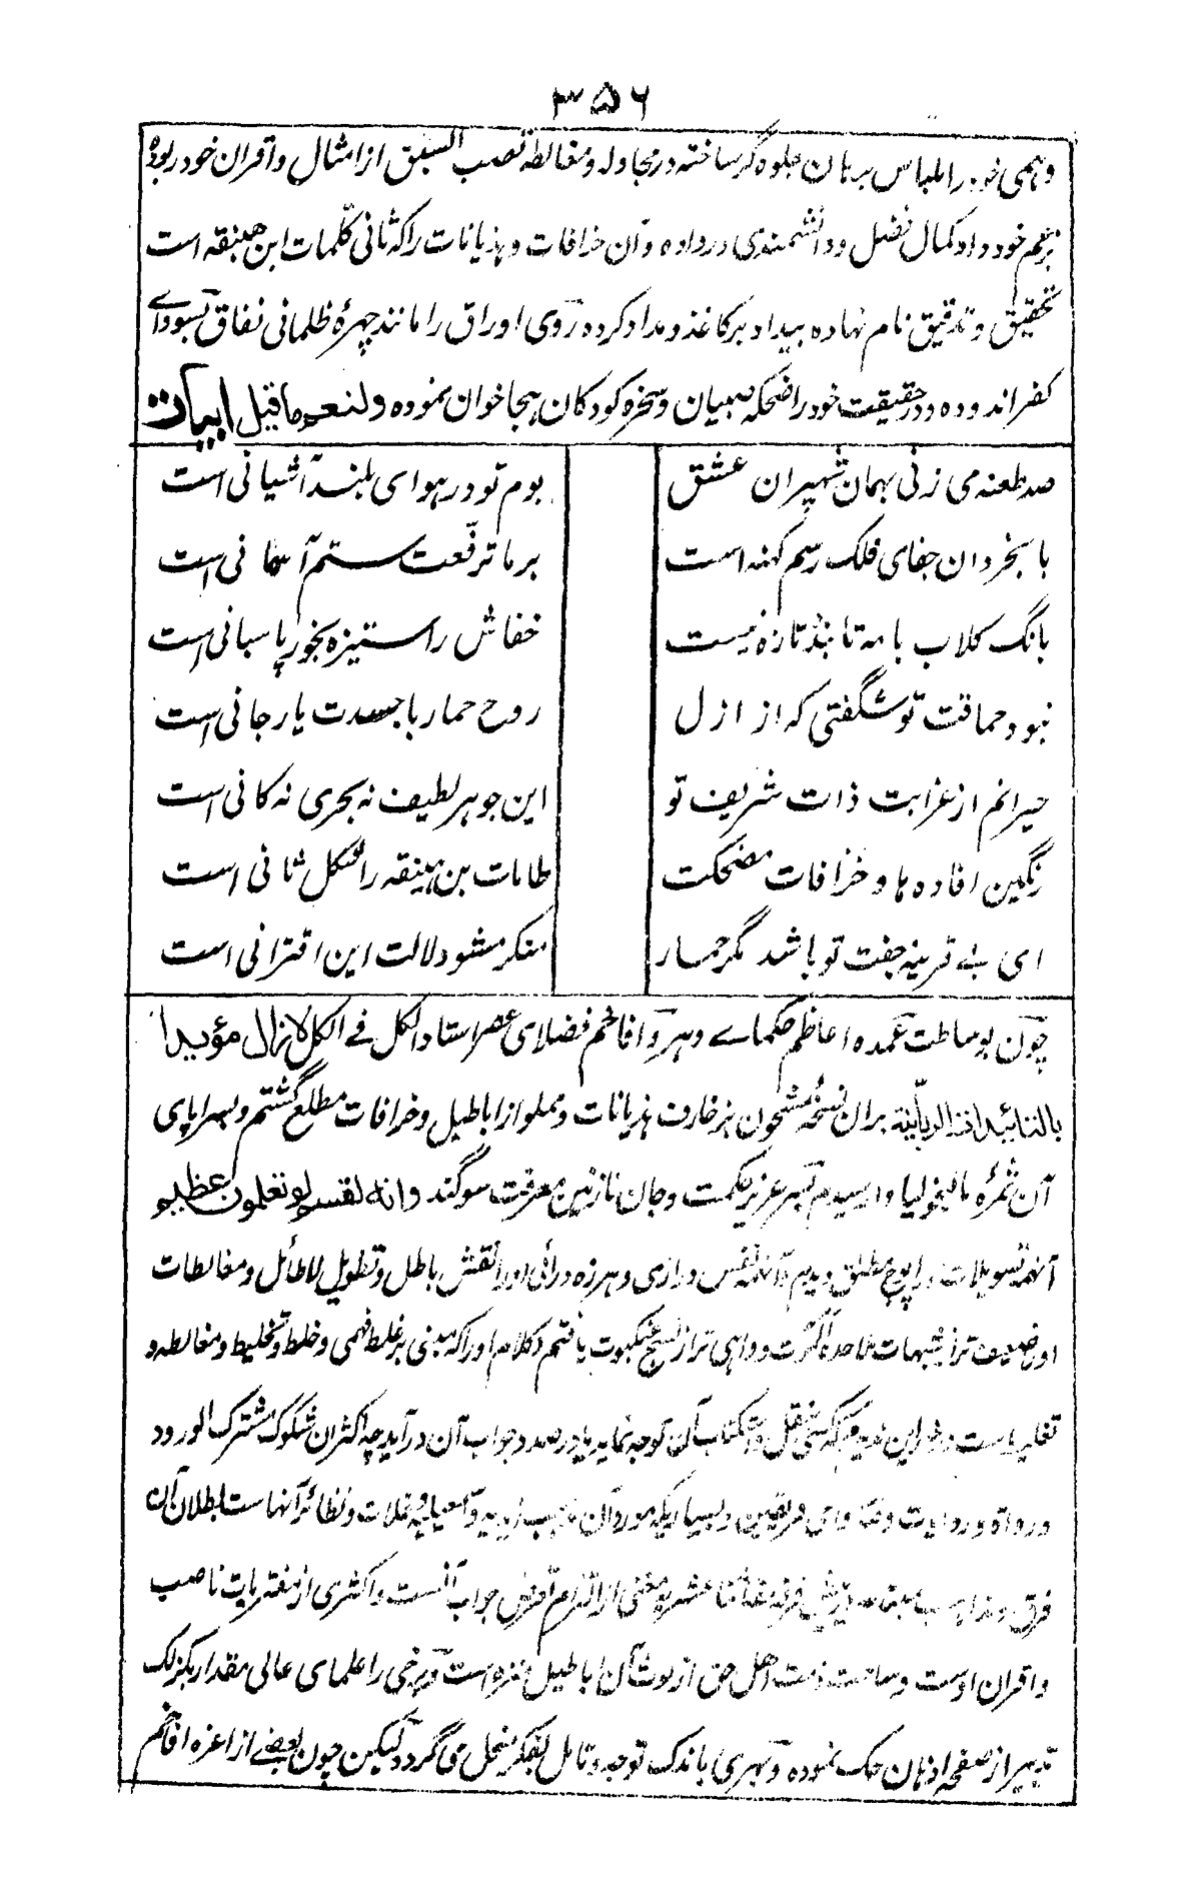 ۳۵۶
وهمی خود را بلباس برهان جلوه گر ساخته در مجادله و مغالطه قصب السبق از امثال و اقران خود ربوده
بزعم خود داد کمال فضل و دانشمندی در داده و آن خرافات و هذیانات را که ثانی کلمات ابن هبنقه است
تحقیق و تدقیق نام نهاده بیداد بر کاغذ و مداد کرده روی اوراق را مانند چهرهٔ ظلمانی نفاق بسوداے
کفر اندوده و در حقیقت خود را ضحکه صبیان و سخره کودکان هجا خوان نموده ولنعم ما قیل ابیات
صد طعنه می زنی بهمان شهپران عشق بوم تو در هوای بلند آشیانی است
با بخردان جفای فلک رسم کهنه است بر ما ترفعت ستم آسمانی است
بانگ کلاب با مه تابنده تازه نیست خفاش را ستیزه بخور پاسبانی است
نبود حماقت تو شگفتی که از ازل روح حمار با جسدت یار جانی است
حیرانم از غرابت ذات شریف تو این جوهر لطیف نه بحری نه کانی است
رنگین افاده ها و خرافات مضحکت طامات بن هبنقه را شکل ثانی است
ای بے قرینه جفت تو باشد مگر حمار منکر مشو دلالت این اقترانی است
چون بوساطت عمده اعاظم حکماے دهر و افاخم فضلای عصر استاد الکل فے الکل لا زال مؤیدا
بالتائیدات الربانیة بران نسخه مشحون بزخارف هذیانات و مملو از اباطیل و خرافات مطلع گشتم و بسراپای
آن ثمرهٔ مالیخولیا وارسیدم بسر عزیز حکمت و جان نازنین معرفت سوگند وانه لقسم لو تعلمون عظیم
آنهمه تسویلات را پوچ مطلق دیدم و آنهمه نفس درازی و هرزه درائی او را نقش باطل و تطویل لا طائل و مغالطات
او ضعیف تر از شبهات ملاحده و واهی تر از نسج عنکبوت یافتم کلام او را که مبنی بر غلط فهمی و خلط و تخلیط و مغالطه و
است این توجه نماید یا در صدد جواب آن در آید چه اکثر ان شکوک مشترک الورود
و رواة و روایت فریقین و بسیاریکه مورد آن و نظائر آنهاست بطلان آن
فرق مغنی از التزام تعرض جواب آنست و اکثری از مفتریات ناصب
و اقران اوست و ساحت ذمت اهل حق از لوث آن اباطیل منزه است و برخی را علمای عالی مقدار بگزلک
تدبیر از صفحه اذهان حک نموده و بهری باندک توجه و تامل بفکر منحل می گردد لیکن چون بعضے از اعزه افاخم